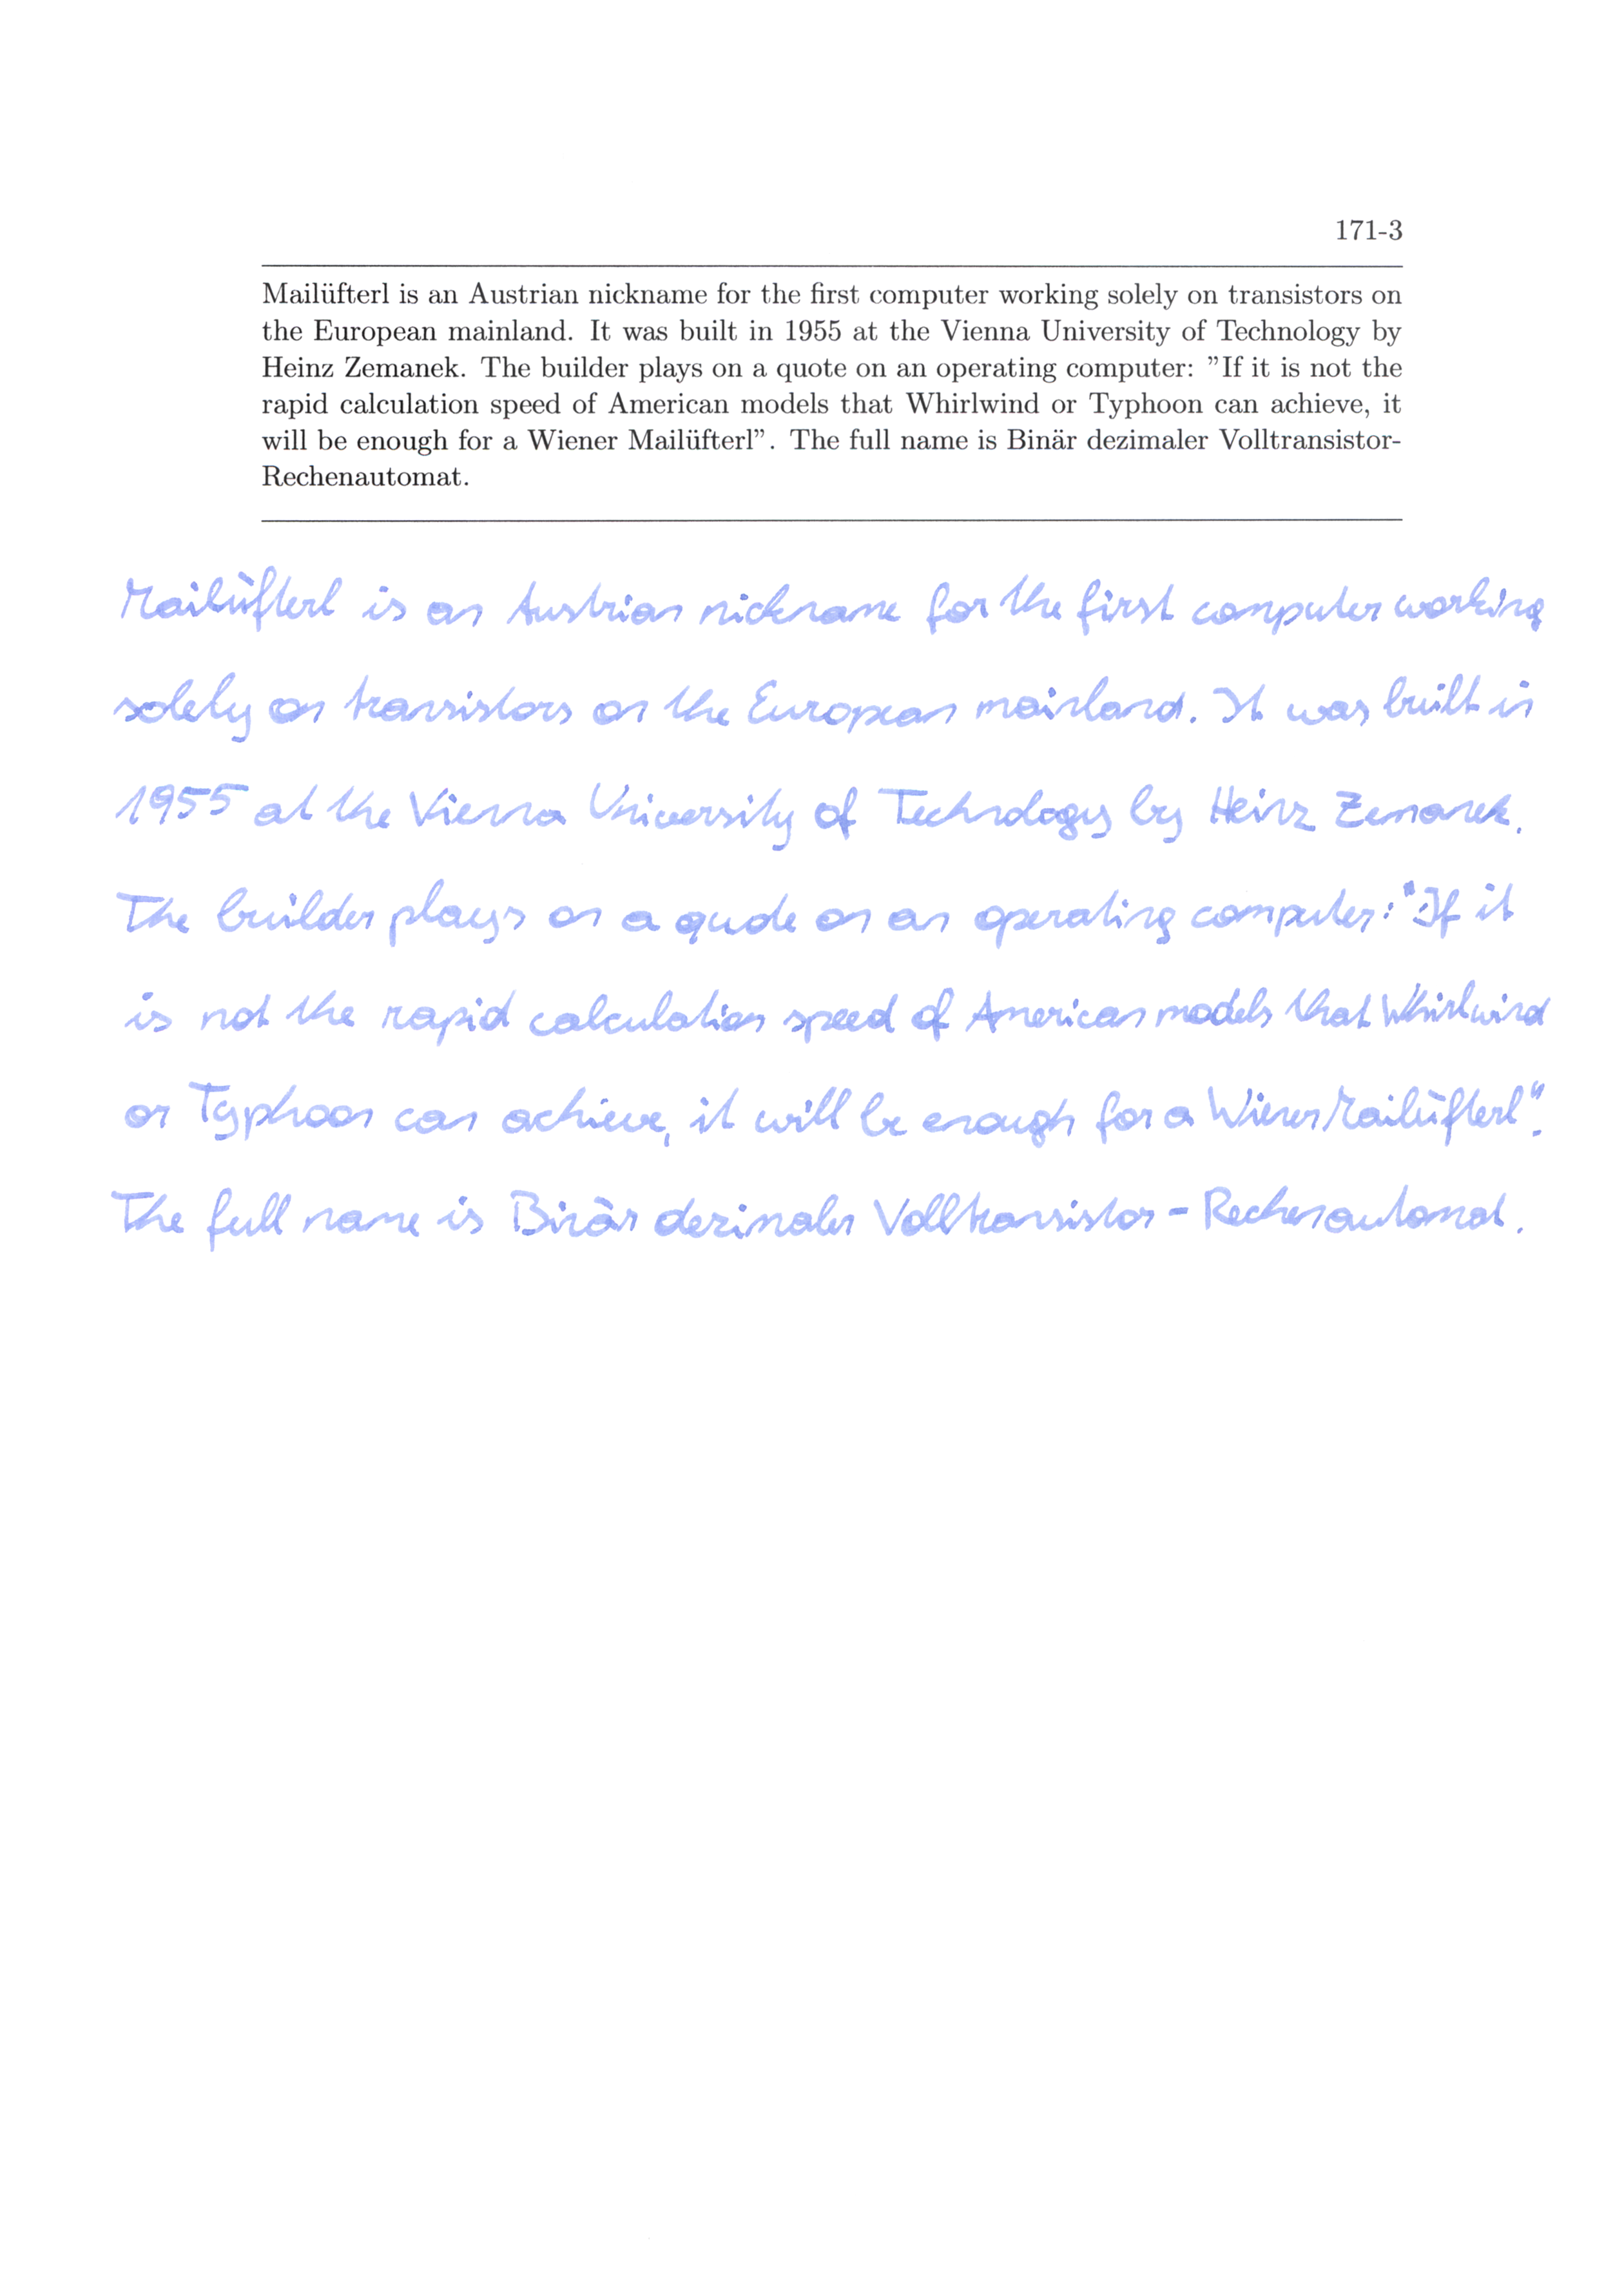 171-3
Mailüfterl is an Austrian nickname for the first computer working solely on transistors on
the European mainland. It was built in 1955 at the Vienna University of Technology by
Heinz Zemanek. The builder plays on a quote on an operating computer: ”If it is not the
rapid calculation speed of American models that Whirlwind or Typhoon can achieve, it
will be enough for a Wiener Mailüfterl”. The full name is Binär dezimaler Volltransistor-
Rechenautomat.
Mailüfterl is an Austrian nickname for the first computer working
solely on transistors on the European mainland. It was built in
1955 at the Vienna University of Technology by Heinz Zemanek.
The builder plays on a quote on an operating computer: "If it
is not the rapid calculation speed of American models that Whirlwind
or Typhoon can achieve, it will be enough for a Wiener Mailüfterl".
The full name is Binär dezimaler Volltransistor-Rechenautomat.